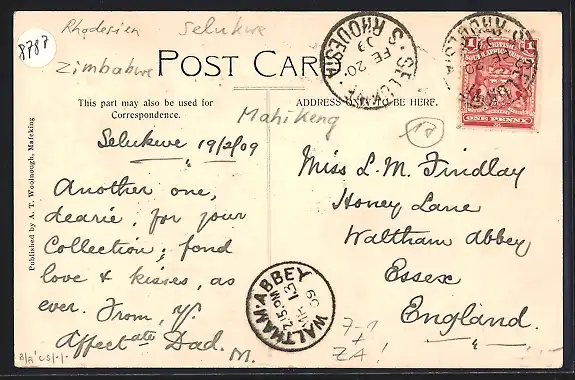 Rhodesien Selukwe
8787
Zimbabwe
POST CARD
SELUKWE
FE 20
09
S. RHODESIA
1 1
ONE PENNY
This part may also be used for
Correspondence.
ADDRESS ONLY TO BE HERE.
Mahikeng
12
Published by A. T. Woolnough, Mafeking
Selukwe 19/2/09
Another one,
dearie, for your
Collection; fond
love & kisses, as
ever. From, yr
Affectate Dad. M.
Miss L. M. Findlay
Honey Lane
Waltham Abbey
Essex
England.
WALTHAM ABBEY
2.15 PM
MH 13
09
7-1
ZA!